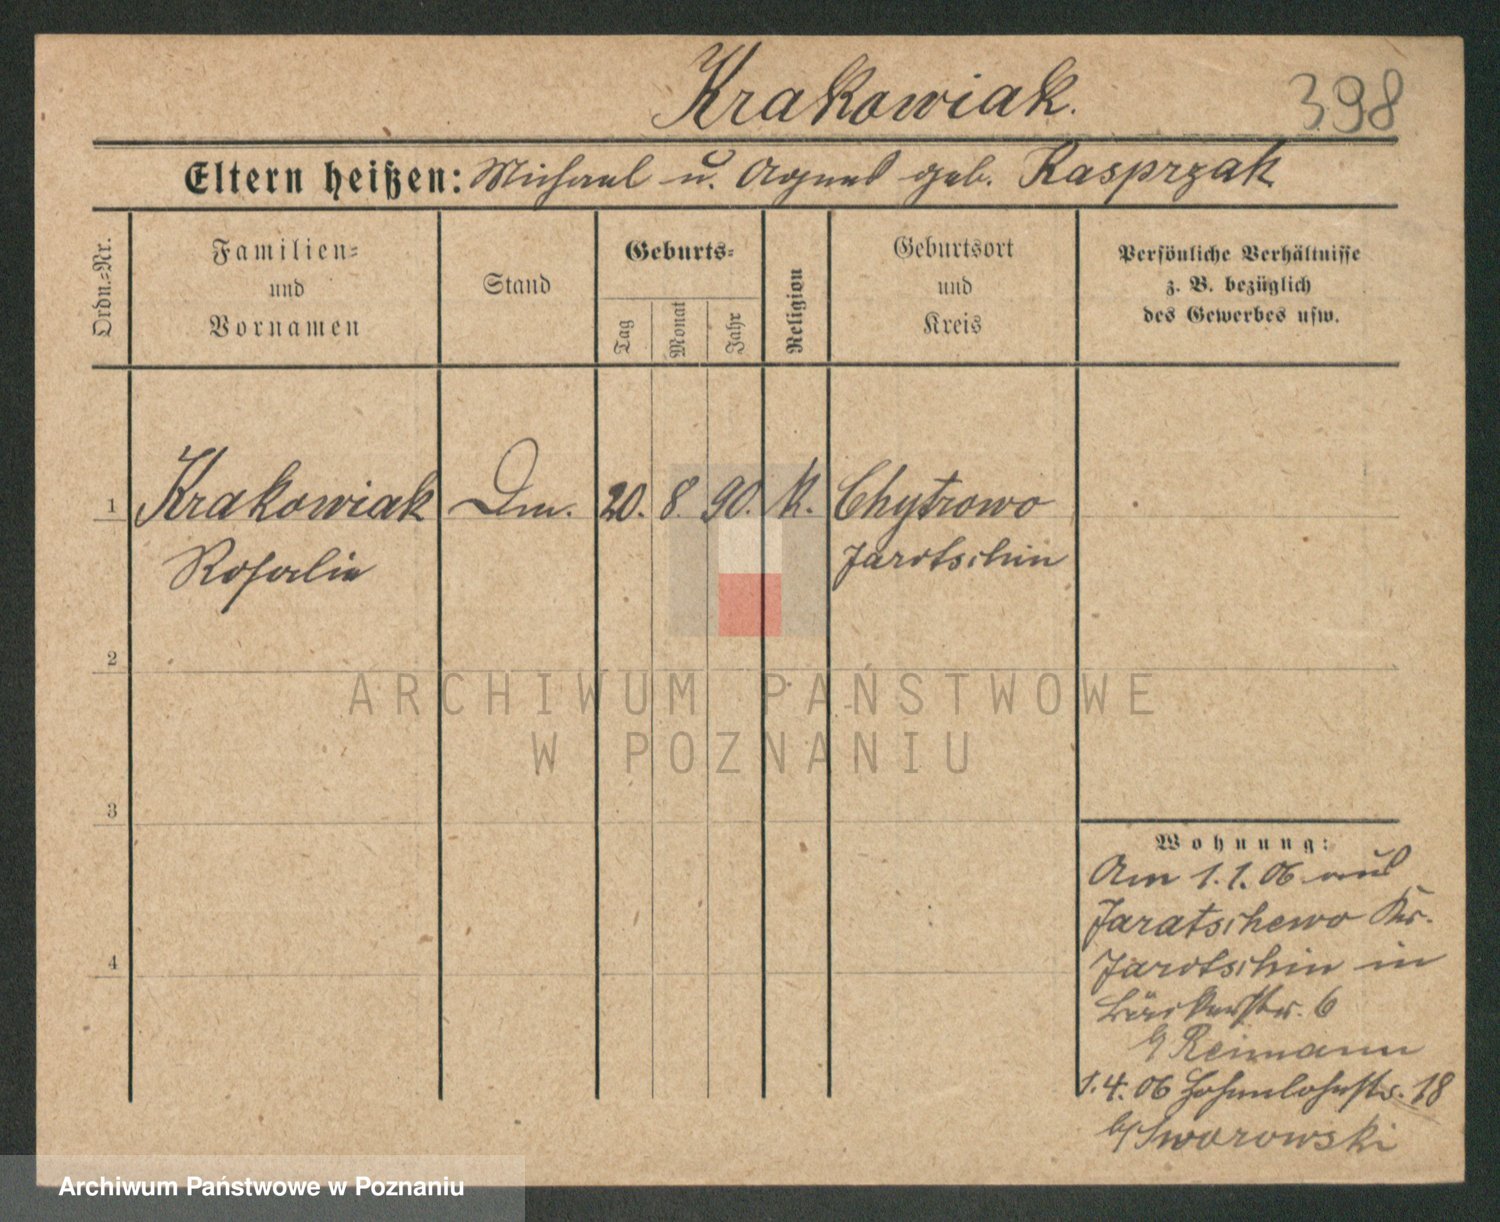 Krakowiak.
398
Eltern heißen: Michael u. Agnes geb. Kasprzak
Ordn.-Nr.
Familien-
und
Vornamen
Stand
Geburts-
Tag
Monat
Jahr
Religion
Geburtsort
und
Kreis
Persönliche Verhältnisse
z. B. bezüglich
des Gewerbes usw.
1 Krakowiak Dm. 20. 8. 90. K. Chytrowo
Rosalie Jarotschin
2
ARCHIWUM PAŃSTWOWE
W POZNANIU
3
Wohnung:
Am 1.1.06 aus
Jaratschewo Kr.
4
Jarotschin in
Bäckerstr. 6
b/ Reimann
1.4.06 Hohenlohestr. 18
b/ Sworowski
Archiwum Państwowe w Poznaniu